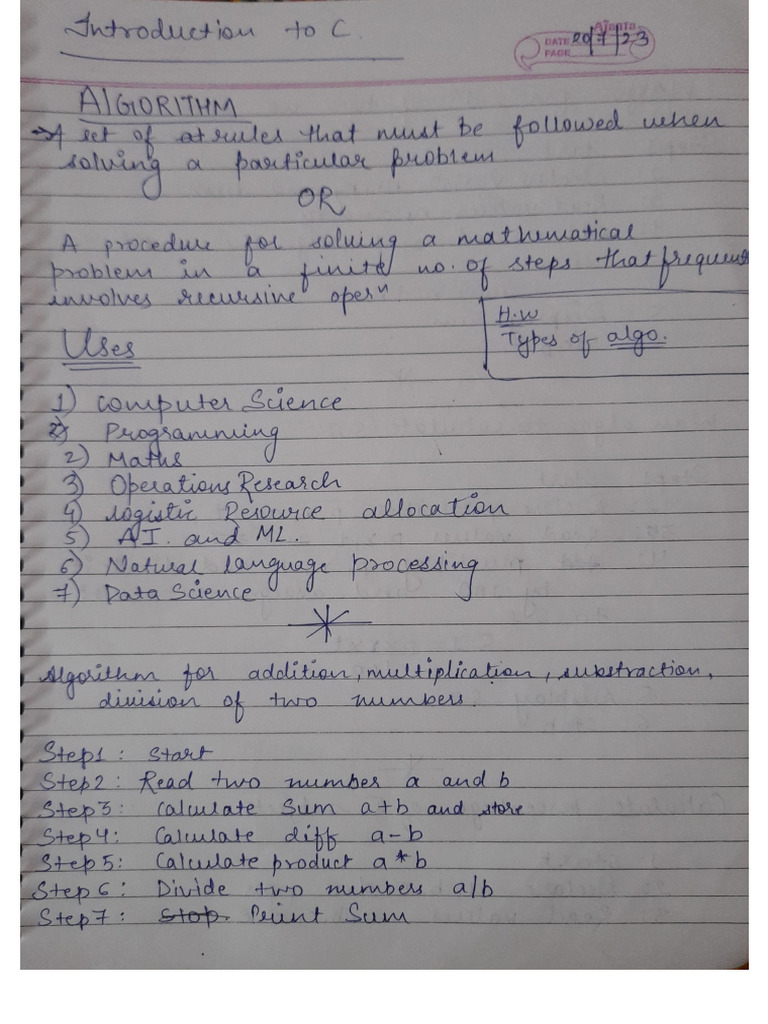 Introduction to C.
Ajanta
DATE 20/7/23
PAGE
ALGORITHM
→ A set of at rules that must be followed when
solving a particular problem
OR
A procedure for solving a mathematical
problem in a finite no. of steps that frequen
involves recursive operⁿ.
H.W
Types of algo.
Uses
1) Computer Science
2) Programming
2) Maths
3) Operations Research
4) Logistic Resource allocation
5) A.I. and ML.
6) Natural language processing
7) Data Science
Algorithm for addition, multiplication, substraction,
division of two numbers.
Step1: Start
Step2: Read two number a and b
Step3: Calculate Sum a+b and store
Step4: Calculate diff a-b
Step5: Calculate product a*b
Step6: Divide two numbers a/b
Step7: Stop. Print Sum